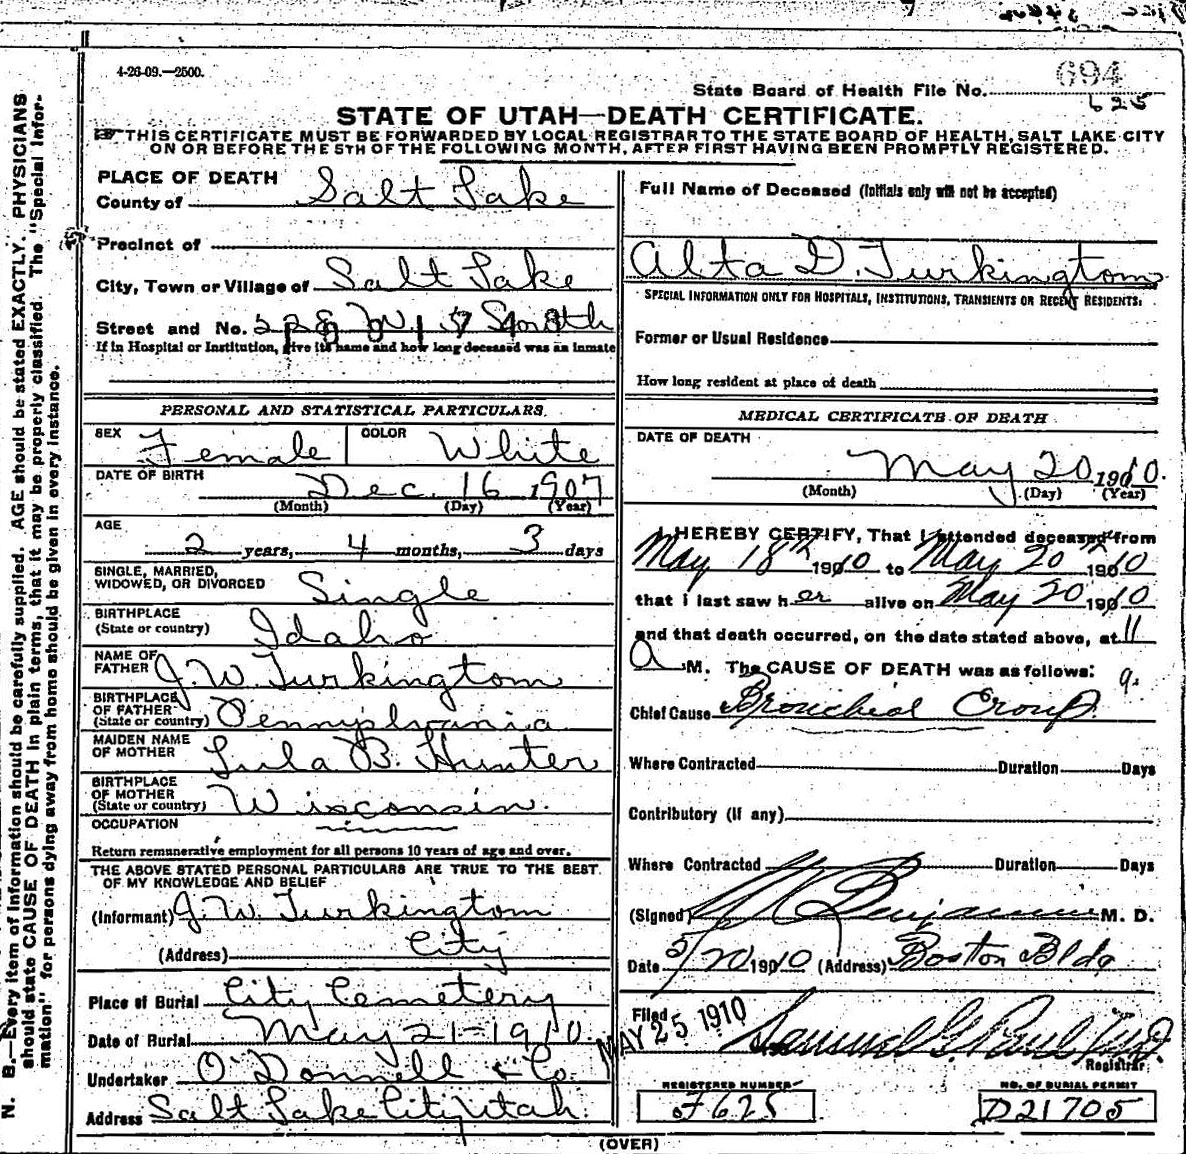 4-26-09.—2500.
State Board of Health File No. 694
625
STATE OF UTAH—DEATH CERTIFICATE.
THIS CERTIFICATE MUST BE FORWARDED BY LOCAL REGISTRAR TO THE STATE BOARD OF HEALTH, SALT LAKE CITY
ON OR BEFORE THE 5TH OF THE FOLLOWING MONTH, AFTER FIRST HAVING BEEN PROMPTLY REGISTERED.
PLACE OF DEATH
County of Salt Lake
Precinct of
City, Town or Village of Salt Lake
Street and No. South
If in Hospital or Institution, give its name and how long deceased was an inmate
PERSONAL AND STATISTICAL PARTICULARS.
SEX Female COLOR White
DATE OF BIRTH Dec. 16 1907
(Month) (Day) (Year)
AGE
2 years, 4 months, 3 days
SINGLE, MARRIED,
WIDOWED, OR DIVORCED Single
BIRTHPLACE
(State or country) Idaho
NAME OF
FATHER J. W. Turkington
BIRTHPLACE
OF FATHER
(State or country) Pennsylvania
MAIDEN NAME
OF MOTHER Lula B. Hunter
BIRTHPLACE
OF MOTHER
(State or country) Wisconsin.
OCCUPATION
Return remunerative employment for all persons 10 years of age and over.
THE ABOVE STATED PERSONAL PARTICULARS ARE TRUE TO THE BEST
OF MY KNOWLEDGE AND BELIEF
(Informant) J. W. Turkington
(Address) City
Place of Burial City Cemetery
Date of Burial May 21-1910.
Undertaker O'Donnell & Co.
Address Salt Lake City Utah.
Full Name of Deceased (Initials only will not be accepted)
Alta D. Turkington
SPECIAL INFORMATION ONLY FOR HOSPITALS, INSTITUTIONS, TRANSIENTS OR RECENT RESIDENTS:
Former or Usual Residence
How long resident at place of death
MEDICAL CERTIFICATE OF DEATH
DATE OF DEATH
May 20 1910.
(Month) (Day) (Year)
I HEREBY CERTIFY, That I attended deceased from
May 18th 1910 to May 20th 1910
that I last saw her alive on May 20 1910
and that death occurred, on the date stated above, at 11
A M. The CAUSE OF DEATH was as follows: 9.
Chief Cause Bronchial Croup.
Where Contracted Duration Days
Contributory (If any)
Where Contracted Duration Days
(Signed) Benjamin M. D.
Date 5/20 1910 (Address) Boston Bldg
Filed MAY 25 1910
Samuel G. Paul M.D.
Registrar
REGISTERED NUMBER
J625
NO. OF BURIAL PERMIT
D21705
(OVER)
N. B.—Every item of information should be carefully supplied. AGE should be stated EXACTLY. PHYSICIANS
should state CAUSE OF DEATH in plain terms, that it may be properly classified. The "Special Infor-
mation" for persons dying away from home should be given in every instance.